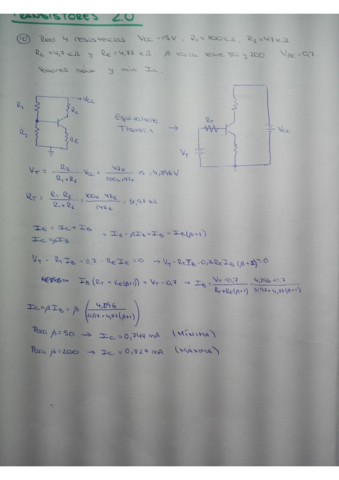 TRANSISTORES 2.0
Red 4 resistencias Vcc = 15V, R1 = 100kΩ, R2 = 47kΩ
Rc = 4,7kΩ y RE = 4,7kΩ β varía entre 50 y 200 VBE = 0,7.
Valores máx y min Ic.
R1
Vcc
R2
RE
Equivalente
Thevenin →
RT
VT
Vcc
VT = R2 / R1+R2 · Vcc = 47k / 100k+47k · 15 = 4,796V
RT = R1·R2 / R1+R2 = 100k·47k / 147k = 31,97kΩ
IE = IC + IB
IC = βIB
= IE = βIB + IB = IB(β+1)
VT - RT IB - 0,7 - RE IE = 0 → VT - RT IB - 0,7 - RE IB (β+1) = 0
IB (RT + RE(β+1)) = VT - 0,7 → IB =
IC = βIB = β
Para β = 50 → IC = 0,747 mA (MÍNIMA)
Para β = 200 → IC = 0,827 mA (MÁXIMA)